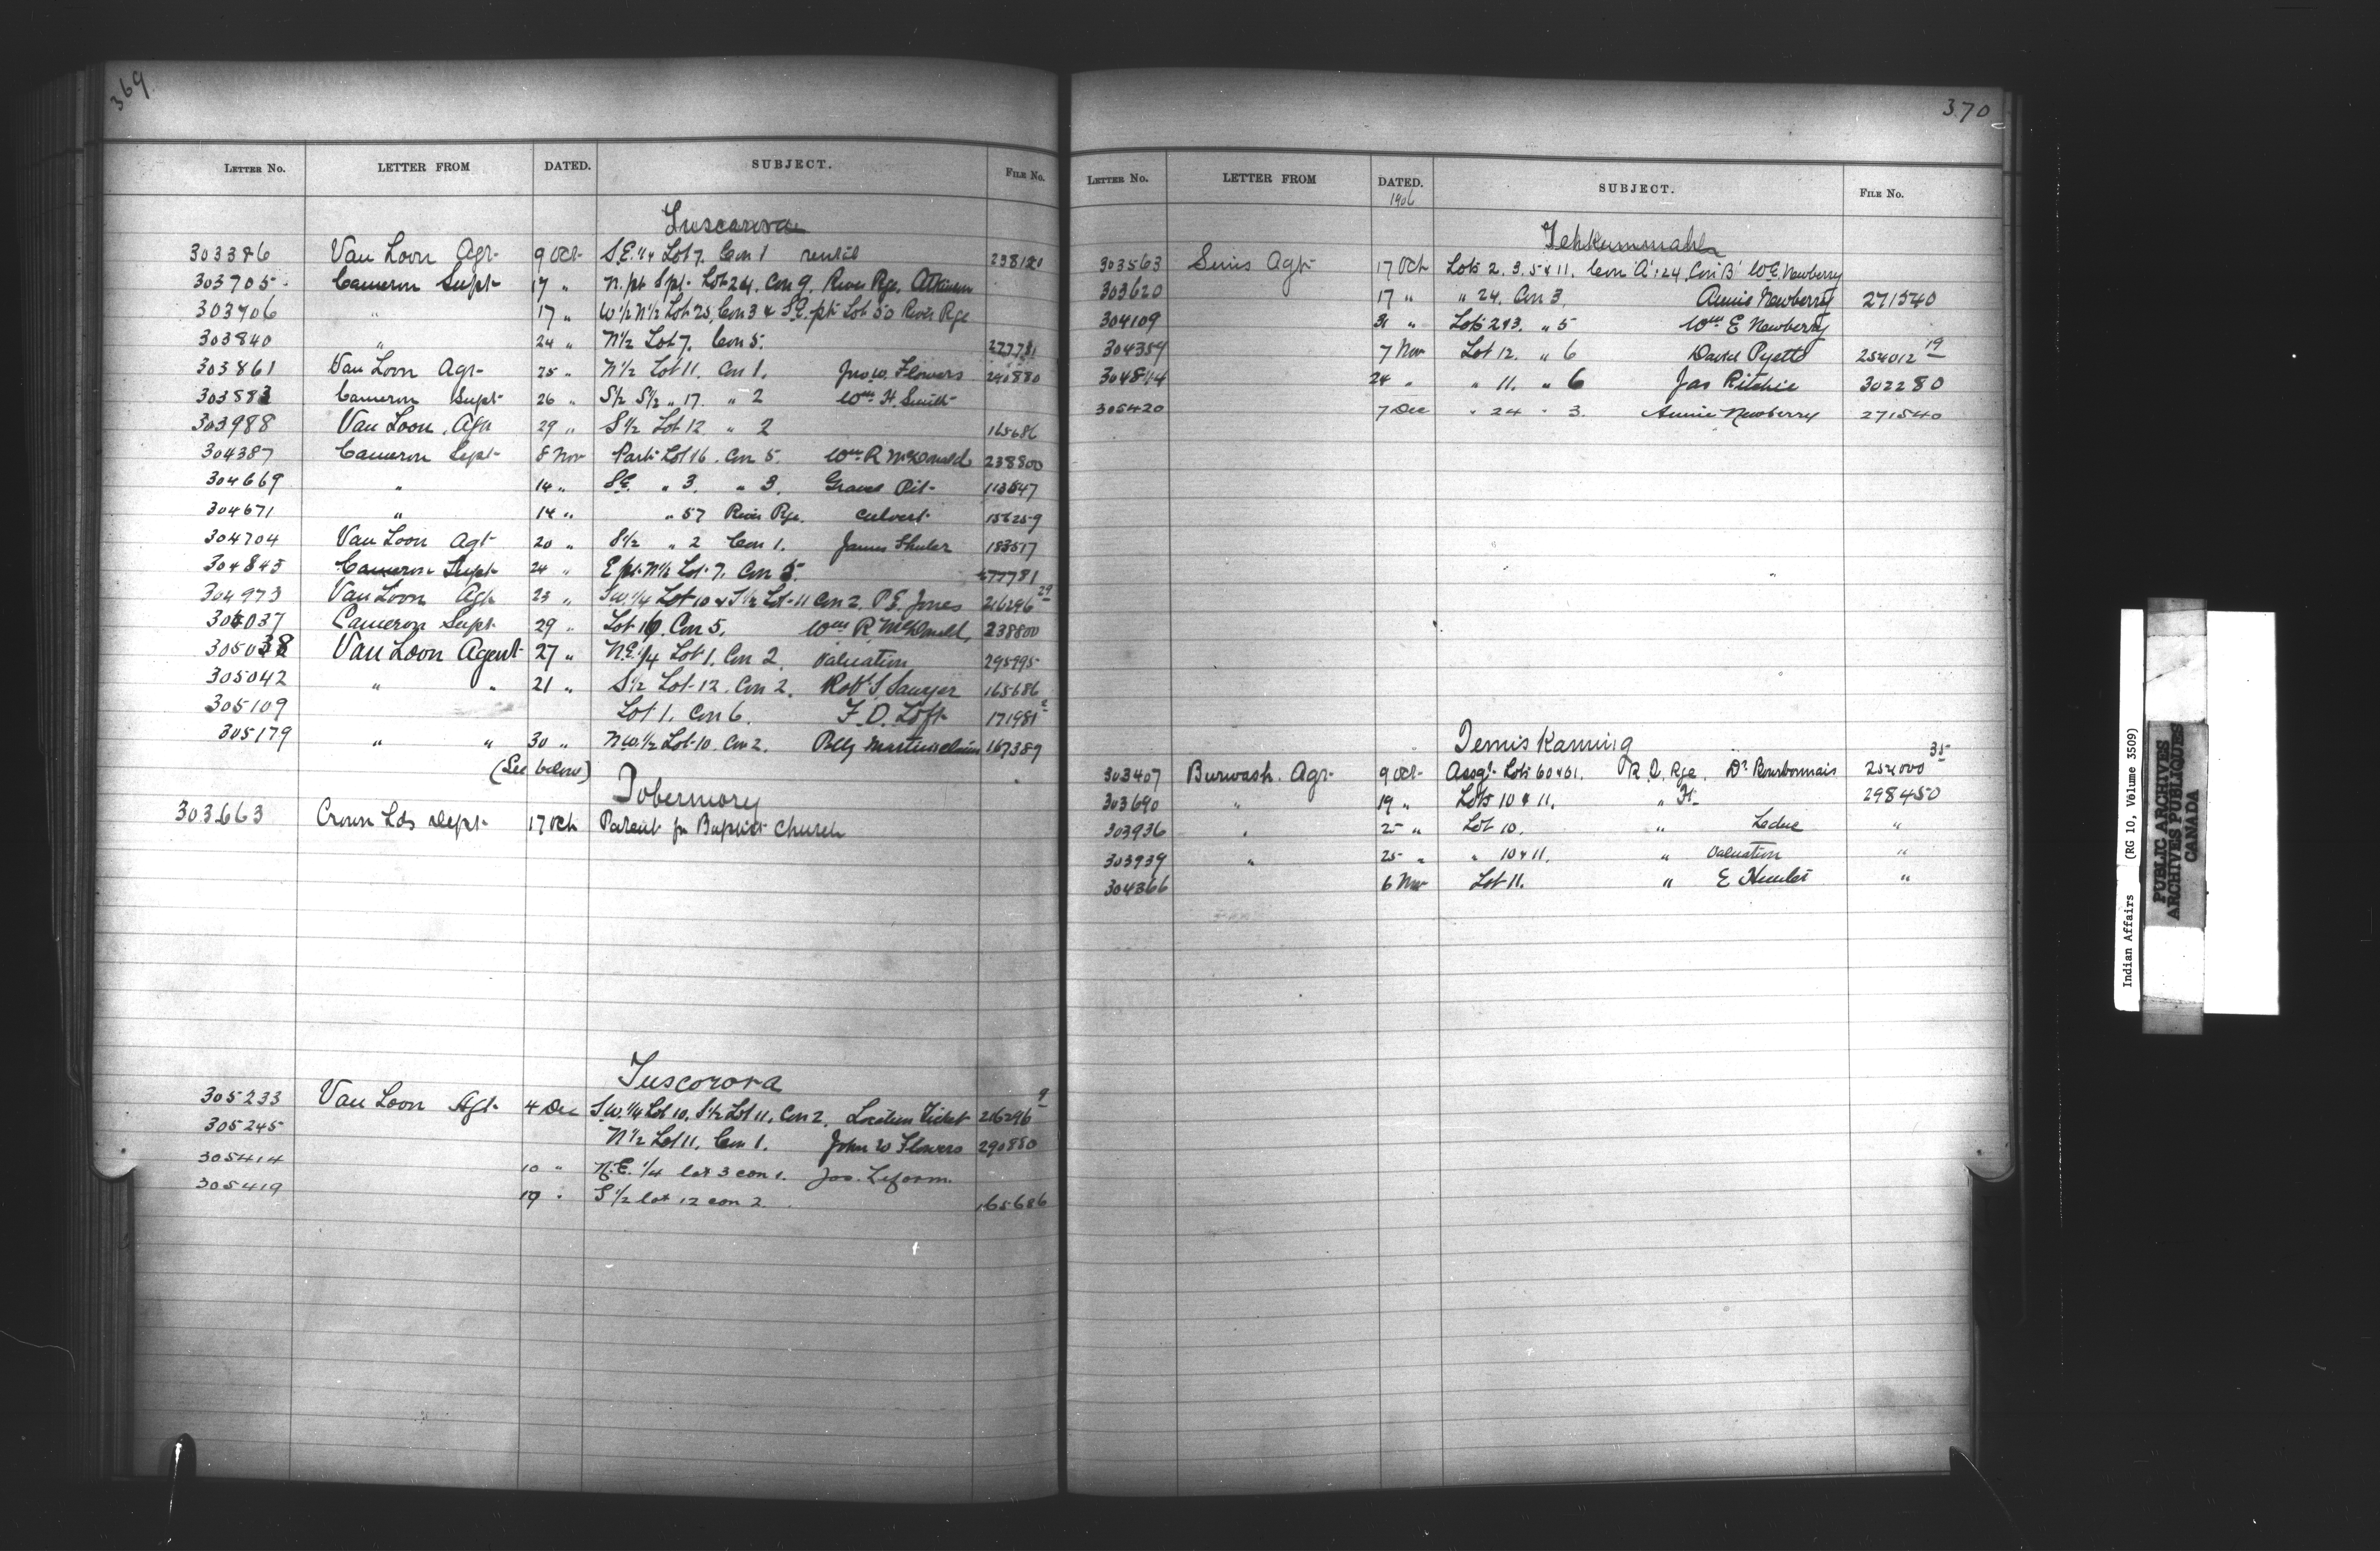 369
LETTER No. LETTER FROM DATED. SUBJECT. FILE No.
Tuscarora
303386 Van Loon Agt 9 Oct S.E. 1/4 Lot 7. Con 1 rental 238120
303705 Cameron Supt 17 " N. pt S pt. Lot 24. Con 9. River Rge. Atkinson
303706 " 17 " W 1/2 N 1/2 Lot 25, Con 3 & S.E. pt Lot 50 River Rge
303840 " 24 " N 1/2 Lot 7. Con 5. 277781
303861 Van Loon Agt 25 " N 1/2 Lot 11. Con 1. Jno W. Flowers 290880
303883 Cameron Supt 26 " S 1/2 S 1/2 " 17. " 2 Wm H. Smith
303988 Van Loon Agt 29 " S 1/2 Lot 12 " 2 165686
304387 Cameron Supt 8 Nov Part Lot 16. Con 5. Wm R McDonald 238800
304669 " 14 " S.E. " 3. " 3. Gravel Pit 113547
304671 " 14 " " 57 River Rge. Culvert 156259
304704 Van Loon Agt 20 " S 1/2 " 2 Con 1. James Shuler 183517
304845 Cameron Supt 24 " E pt. N 1/2 Lot 7. Con 5. 277781
304973 Van Loon Agt 23 " S.W. 1/4 Lot 10 & S 1/2 Lot 11 Con 2. P.E. Jones 216296 29
305037 Cameron Supt 29 " Lot 16. Con 5. Wm R McDonald, 238800
305038 Van Loon Agent 27 " N.E. 1/4 Lot 1. Con 2. Valuation 295995
305042 " " 21 " S 1/2 Lot 12. Con 2. Robt S. Sawyer 165686
305109 Lot 1. Con 6. F.D. Loft 171981
305179 " " 30 " N.W. 1/2 Lot 10. Con 2. Polly Martins claim 167389
(See below)
Tobermory
303663 Crown Lds Dept 17 Oct Patent for Baptist Church
Tuscorora
305233 Van Loon Agt 4 Dec S.W. 1/4 Lot 10. S 1/2 Lot 11. Con 2. Location Ticket 216296 9
305245 N 1/2 Lot 11. Con 1. John W Flowers 290880
305414 10 " N.E. 1/4 lot 3 con 1. Jos.
305419 19 " S 1/2 lot 12 con 2. 165686
370
LETTER No. LETTER FROM DATED. SUBJECT. FILE No.
1906
Tehkummah
303563 Sims Agt 17 Oct Lots 2. 3. 5 & 11. Con 'A' : 24. Con 'B' W.E. Newberry
303620 17 " " 24. Con 3. Annie Newberry 271540
304109 31 " Lots 2 & 3. " 5 Wm E Newberry
304359 7 Nov Lot 12. " 6 David Pyette 254012 19
304844 24 " " 11. " 6 Jas Ritchie 302280
305420 7 Dec " 24 " 3. Annie Newberry 271540
Temiskaming
303407 Burwash. Agt 9 Oct Assgt. Lots 60 & 61. R.Q. Rge. Dr Bourbonnais 254000 35
303690 " 19 " Lots 10 & 11. " 298450
303936 " 25 " Lot 10. " Leduc "
303939 " 25 " " 10 & 11. " Valuation "
304366 6 Nov Lot 11. " E "
Indian Affairs (RG 10, Volume 3509)
PUBLIC ARCHIVES
ARCHIVES PUBLIQUES
CANADA